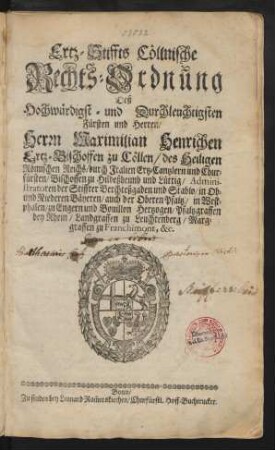 Ertz-Stiffts Cöllnische
Rechts-Ordnung
Deß
Hochwürdigst- und Durchleuchtigsten
Fürsten und Herren/
Herrn Maximilian Henrichen
Ertz-Bischoffen zu Cöllen/ des Heiligen
Römischen Reichs/ durch Italien Ertz-Cantzlern und Chur-
fürsten/ Bischoffen zu Hildesheimb und Lüttig/ Admini-
stratoren der Stiffter Berchteßgaden und Stablo/ in Ob-
und Niederen Bäyeren/ auch der Oberen Pfaltz/ in West-
phalen/ zu Engern und Bouillon Hertzogen/ Pfaltzgraffen
bey Rhein/ Landgraffen zu Leuchtenberg/ Marg-
graffen zu Franchimont, &c.
Bonn/
Zu finden bey Leonard Rommerskirchen/ Churfürstl. Hoff-Buchtrucker.